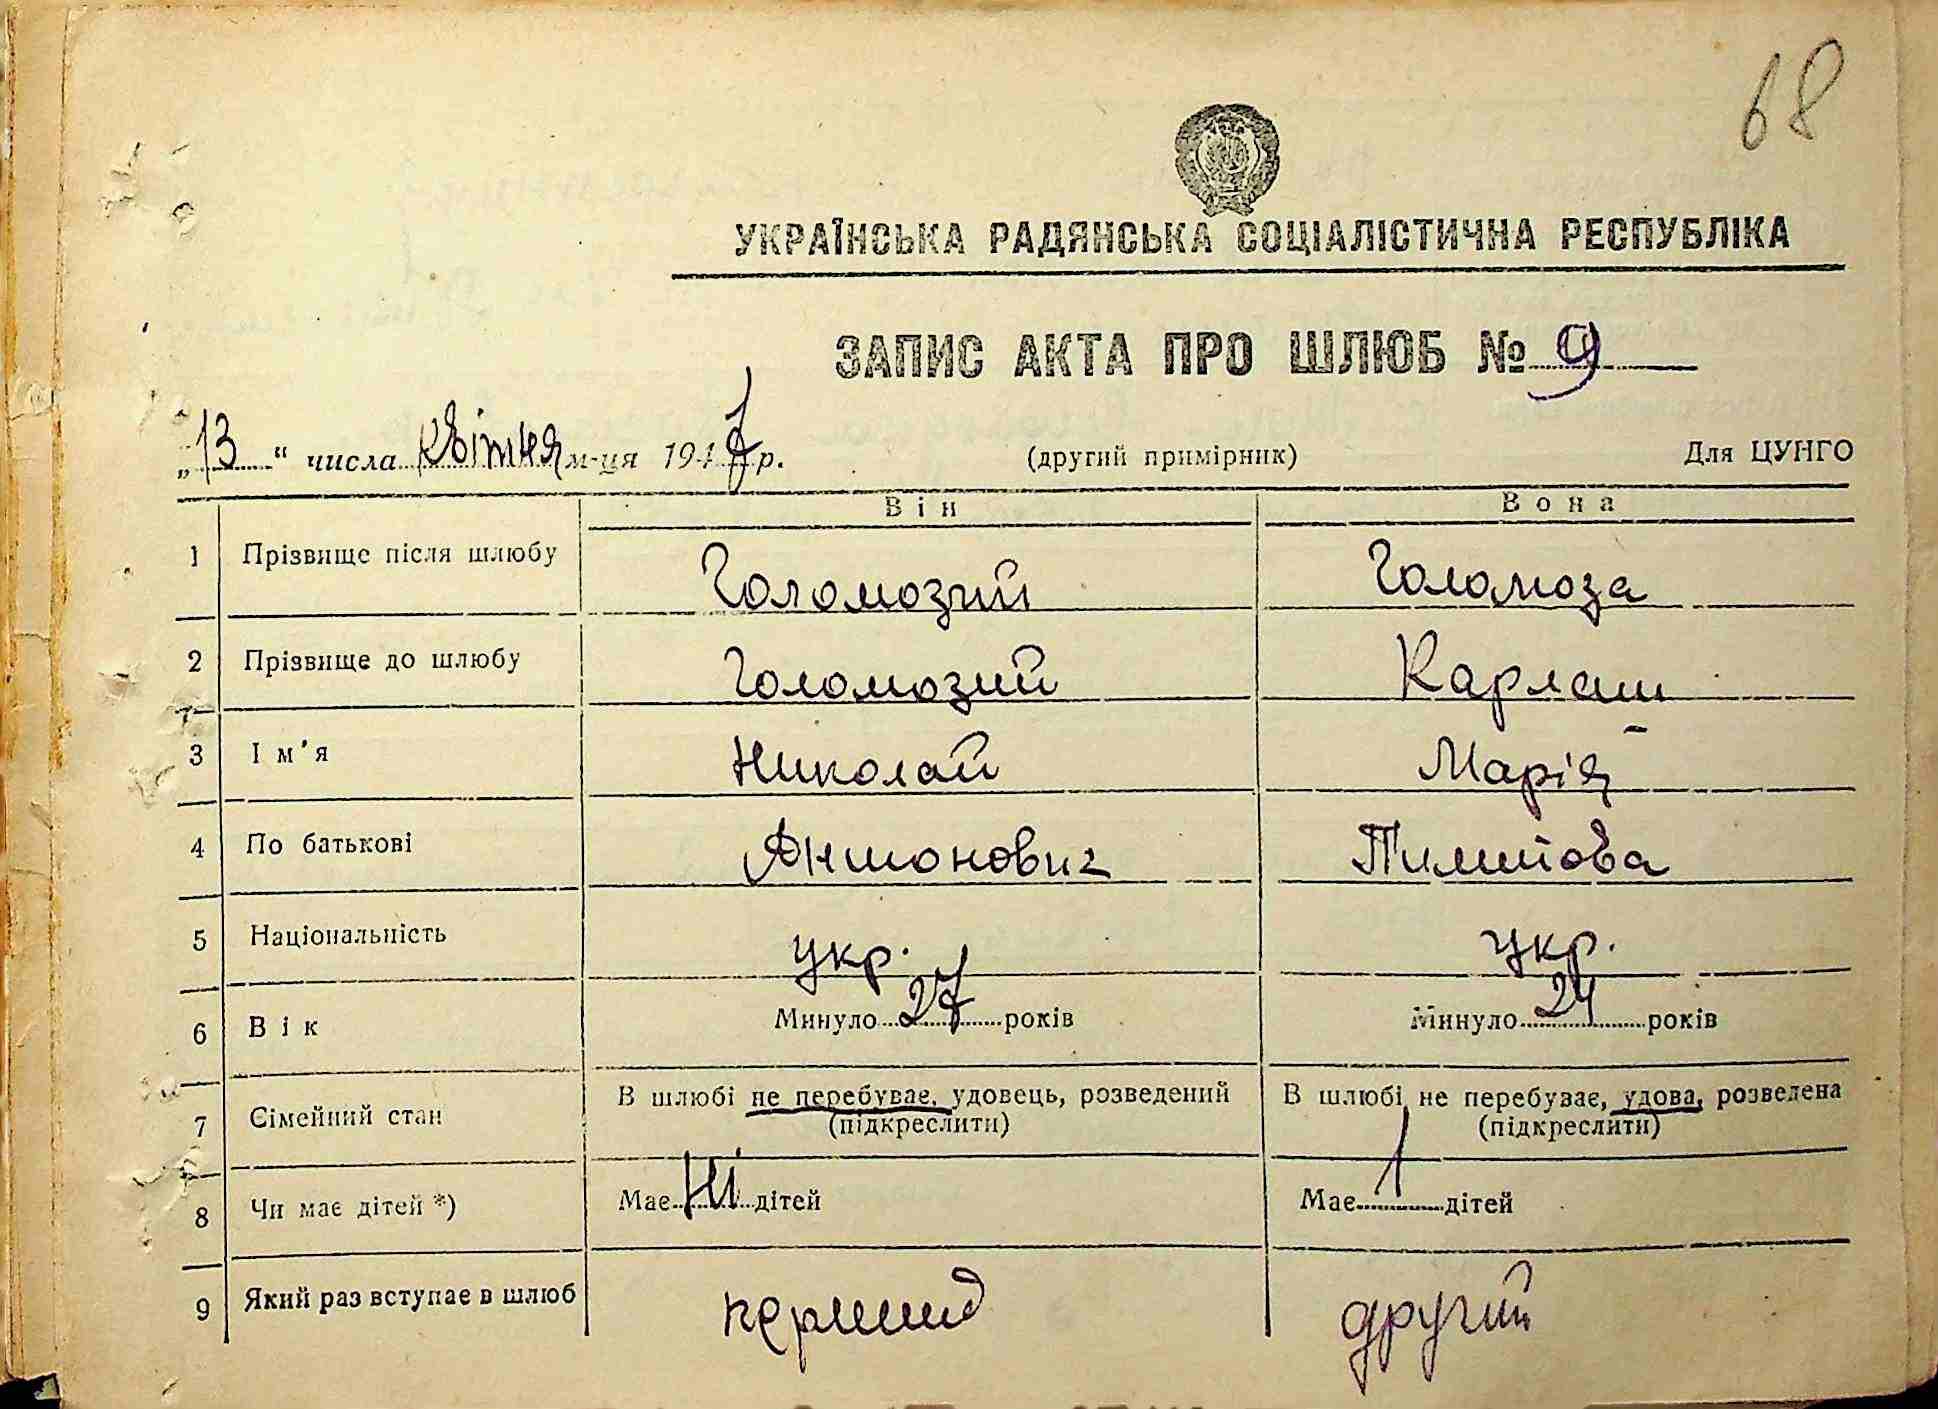 68
УКРАЇНСЬКА РАДЯНСЬКА СОЦІАЛІСТИЧНА РЕСПУБЛІКА
ЗАПИС АКТА ПРО ШЛЮБ № 9
„13“ числа квітня м-ця 1947 р. (другий примірник) Для ЦУНГО
Він Вона
1 Прізвище після шлюбу Голомозий Голомоза
2 Прізвище до шлюбу Голомозий Карлаш
3 Ім'я Николай Марія
4 По батькові Антонович
5 Національність укр. укр.
6 Вік Минуло 27 років Минуло 24 років
7 Сімейний стан В шлюбі не перебуває, удовець, розведений В шлюбі не перебуває, удова, розведена
(підкреслити) (підкреслити)
8 Чи має дітей *) Має ні дітей Має 1 дітей
9 Який раз вступає в шлюб перший другий